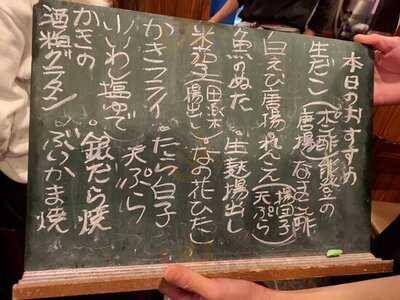 本日のおすすめ
生だこ(ポン酢 唐揚) 能登のなまこ酢
白えび唐揚 れんこん(揚団子 天ぷら)
魚のぬた 。生麩揚出し
米茄子(田楽 揚出し) なの花ひたし
かきフライ 。たら白子天ぷら
小いわし塩ゆで 。銀だら焼
かきの
酒粕グラタン 。ぶりかま焼